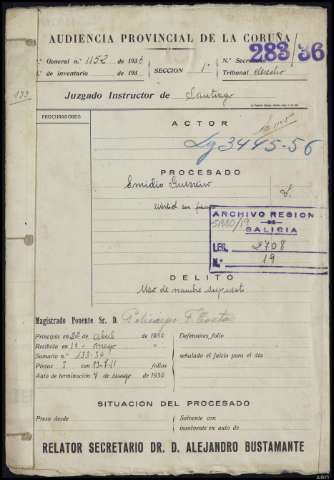 AUDIENCIA PROVINCIAL DE LA CORUÑA
N.º General n.º 1152 de 1936 N.º Secretaría
283/36
N.º de inventario de 193 SECCION 1ª Tribunal derecho
133
Juzgado Instructor de Santiago
PROCURADORES
ACTOR
Lg 3445-56
PROCESADO
Emidio
libertad sin fianza
ARCHIVO REGIONAL
DE
GALICIA
LEG. 2708
N.º 19
DELITO
Uso de nombre supuesto
Magistrado Ponente Sr. D. Policarpo F. Costas
Principió en 22 de abril de 1936 Defensores, folio
Recibida en 14 mayo
Sumario n.º 133-36 señalado el juicio para el día
Piezas 1 con folios
Auto de terminación 9 de mayo de 1936
SITUACION DEL PROCESADO
Preso desde Solvente con
Insolvente en auto de
RELATOR SECRETARIO DR. D. ALEJANDRO BUSTAMANTE